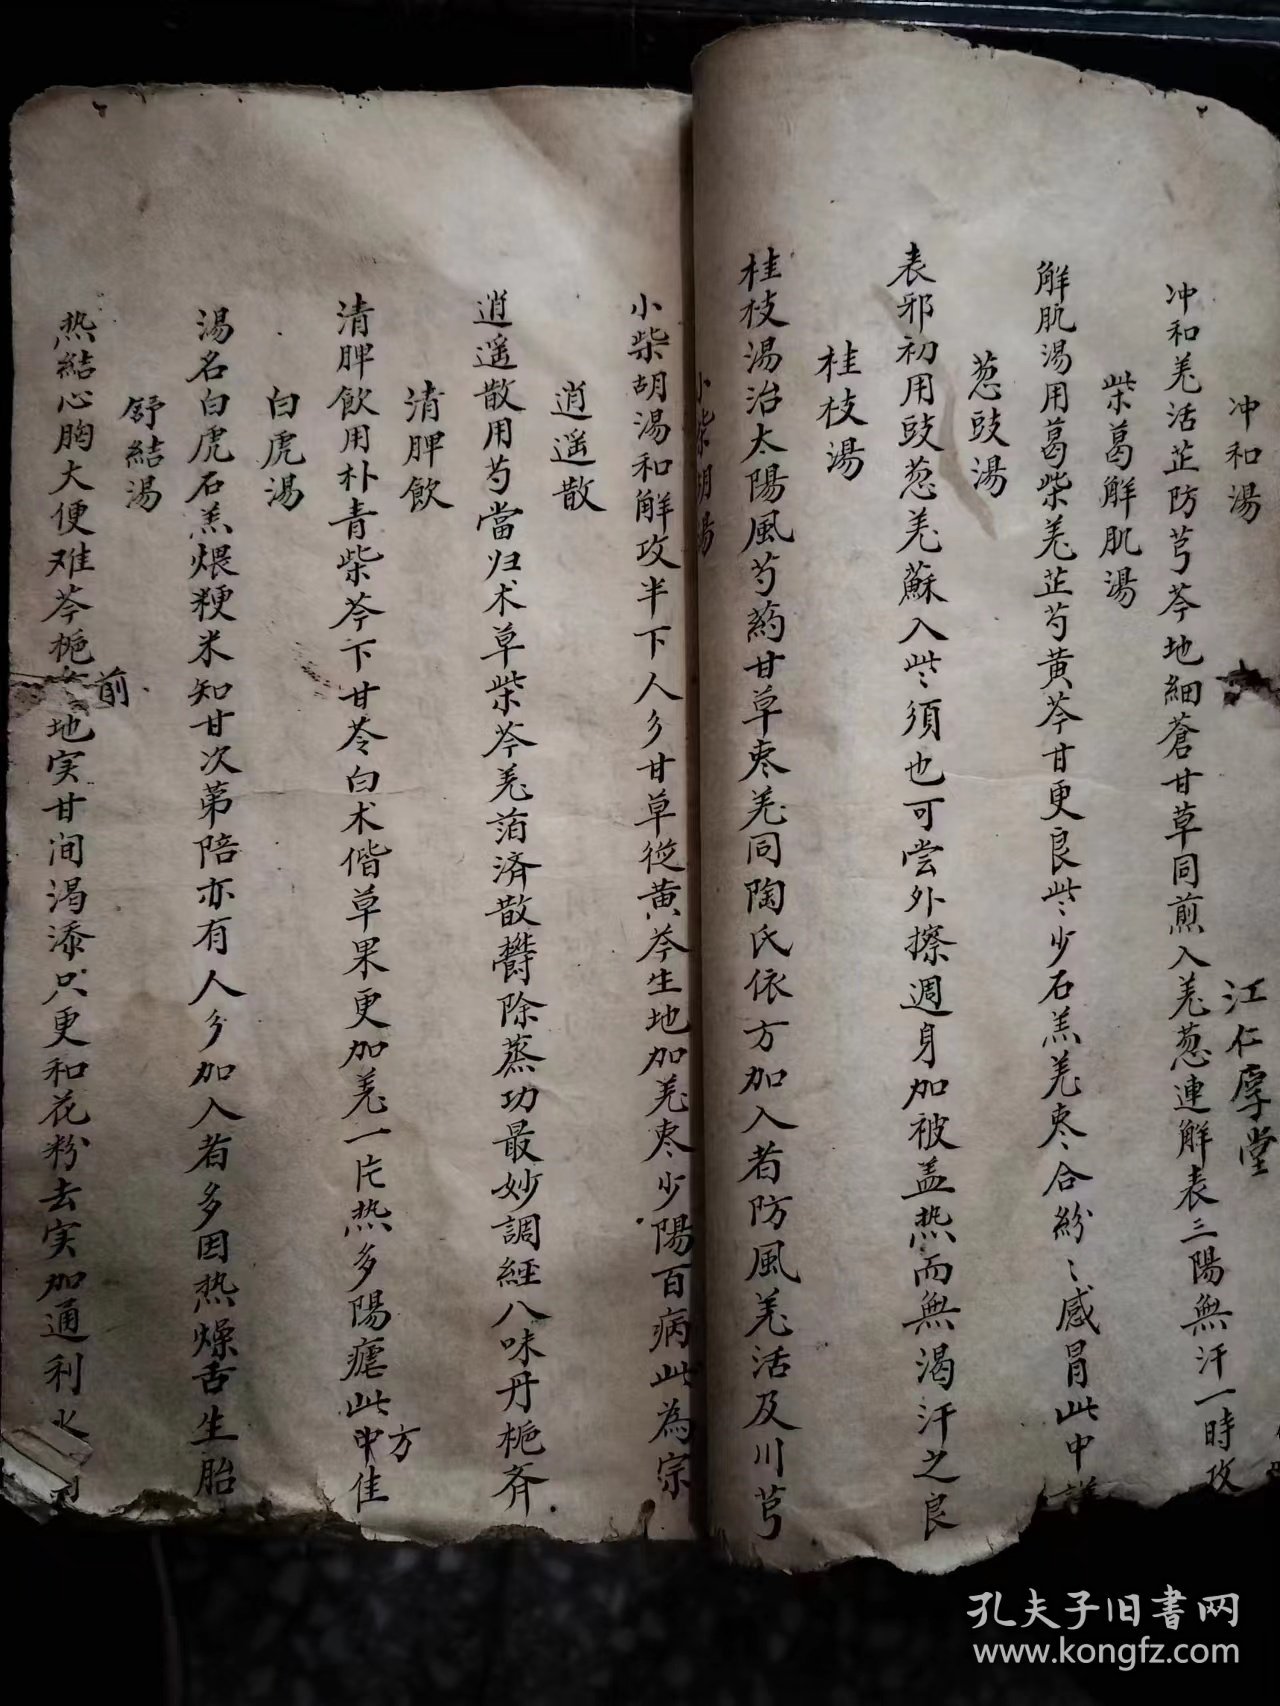 冲和湯
江仁厚堂
冲和羗活芷防芎芩地細蒼甘草同煎入羗葱連解表三陽無汗一時攻
柴葛解肌湯
解肌湯用葛柴羗芷芍黄芩甘更良此少石羔羗枣合紛〻感冒此中
葱豉湯
表邪初用豉葱羗蘇入此須也可尝外擦週身加被盖热而無渴汗之良
桂枝湯
桂枝湯治太陽風芍药甘草枣羗同陶氏依方加入者防風羗活及川芎
小柴胡湯
小柴胡湯和解攻半下人參甘草從黄芩生地加羗枣少陽百病此為宗
逍遥散
逍遥散用芍當归术草柴苓羗萡済散欝除蒸功最妙調經八味丹栀斉
清脾飲
清脾飲用朴青柴芩下甘苓白术偕草果更加羗一片热多陽瘧此中佳
方
白虎湯
湯名白虎石羔煨粳米知甘次第陪亦有人參加入者多因热燥舌生胎
舒結湯
前
热結心胸大便难芩栀地实甘间渴添只更和花粉去实加通利水
孔夫子旧书网
www.kongfz.com